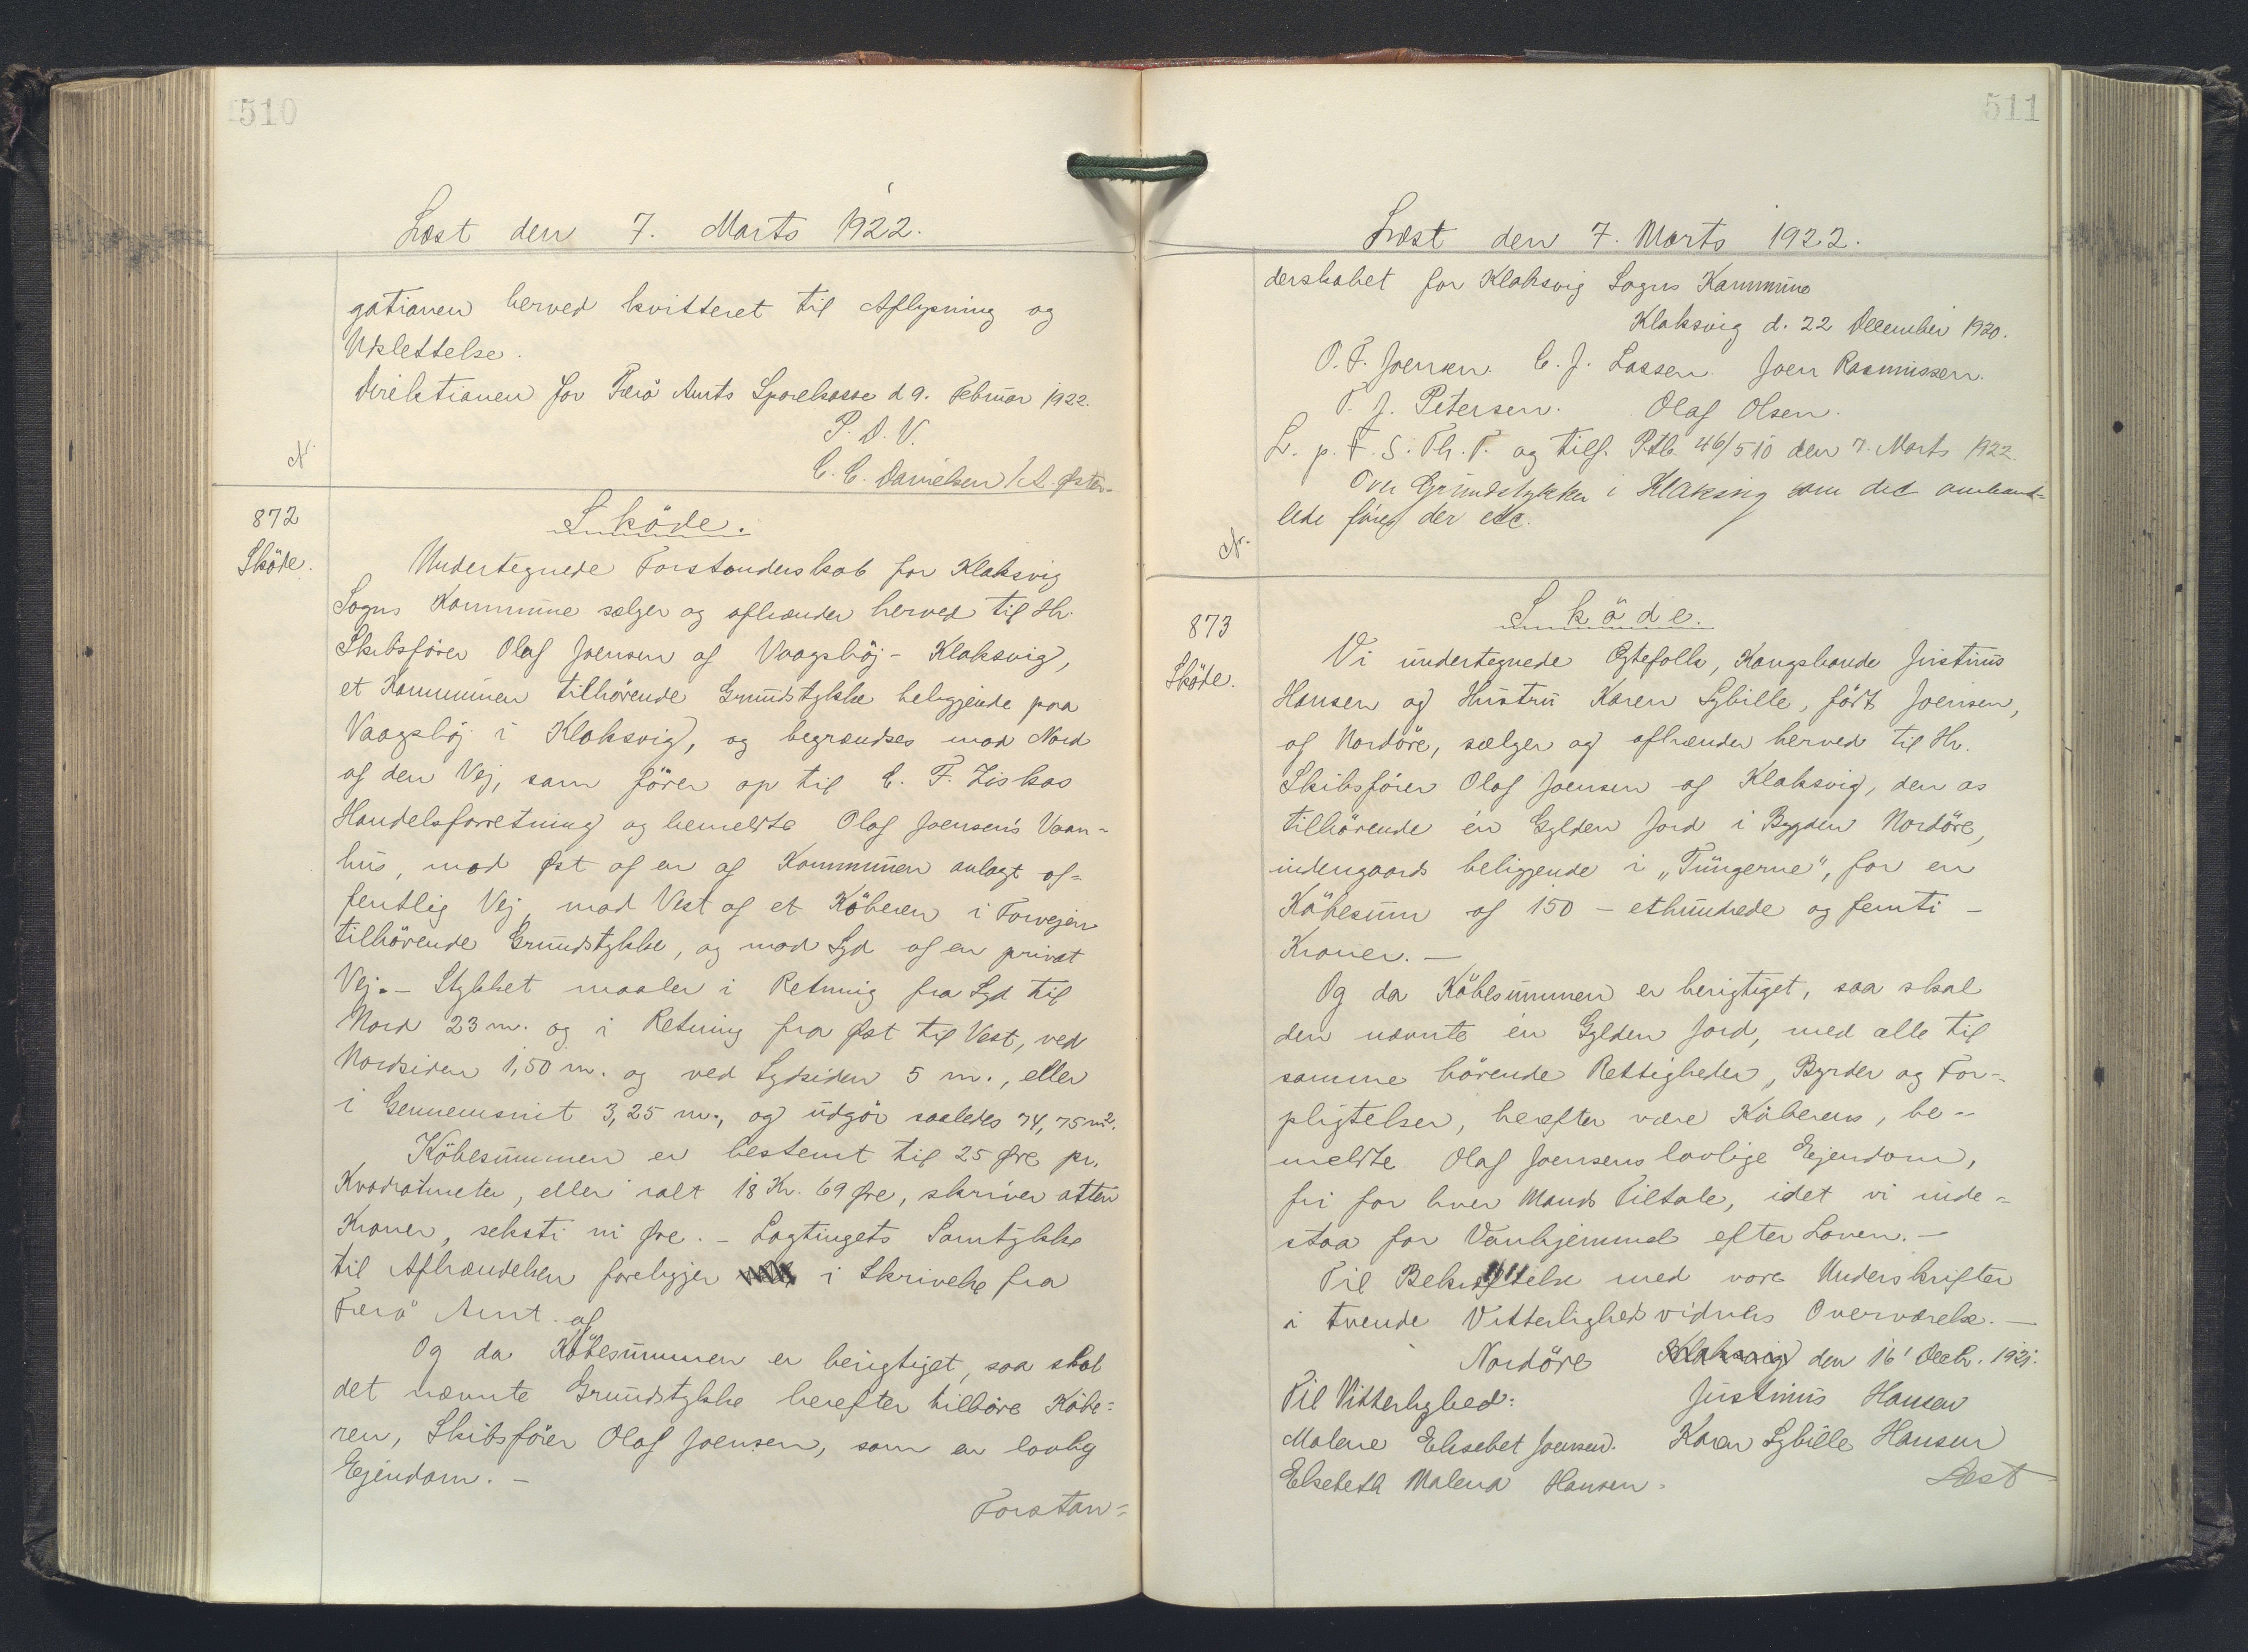 510
Læst den 7. Marts 1922.
gationen herved kvitteret til Aflysning og
Udslettelse.
Direktionen for Færö Amts Sparekasse d 9. Februar 1922.
P. D. V.
N.
C. C. Danielsen / A. Øster-
872
Sköde.
Sköde.
Undertegnede Forstanderskab for Klaksvig
Sogns Kommune sælger og afhænder herved til Hr.
Skibsförer Olaf Joensen af Vaagshöj - Klaksvig,
et Kommunen tilhörende Grundstykke beliggende paa
Vaagshöj i Klaksvig, og begrændses mod Nord
af den Vej, som förer op til E. F. Ziskas
Handelsforretning og bemeldte Olaf Joensen's Vaan-
hus, mod Øst af en af Kommunen anlagt of-
fentlig Vej, mod Vest af et Köberen i Forvejen
tilhörende Grundstykke, og mod Syd af en privat
Vej. - Stykket maaler i Retning fra Syd til
Nord 23 m. og i Retning fra Øst til Vest, ved
Nordsiden 1,50 m. og ved Sydsiden 5 m., eller
i Gennemsnit 3,25 m., og udgör saaledes 74,75 m2.
Köbesummen er bestemt til 25 Øre pr.
Kvadratmeter, eller ialt 18 Kr. 69 Øre, skriver atten
Kroner, seksti ni Øre. - Lagtingets Samtykke
til Afhændelsen foreligger i Skrivelse fra
Færö Amt. af
Og da Köbesummen er berigtiget, saa skal
det nævnte Grundstykke herefter tilhöre Köbe-
ren, Skibsförer Olaf Joensen, som en lovlig
Ejendom. -
Forstan=
511
Læst den 7. Marts 1922.
derskabet for Klaksvig Sogns Kommune
Klaksvig d. 22 December 1920.
O. F. Joensen. C. J. Lassen. Joen Rasmussen.
T. J. Petersen. Olaf Olsen.
L. p. F. S. Th. T. og tilf. Ptb. 46/510 den 7. Marts 1922.
Over Grundstykker i Klaksvig som det omhand-
lede föres der etc.
N.
873
Sköde.
Sköde.
Vi undertegnede Ægtefolk, Kongsbonde Justinus
Hansen og Hustru Karen Sybille, födt Joensen,
af Nordöre, sælger og afhænder herved til Hr.
Skibsförer Olaf Joensen af Klaksvig, den os
tilhörende én Gylden Jord i Bygden Nordöre,
indengaards beliggende i „Tungerne", for en
Köbesum af 150 - ethundrede og femti -
Kroner. -
Og da Köbesummen er berigtiget, saa skal
den nævnte én Gylden Jord, med alle til
samme hörende Rettigheder, Byrder og For-
pligtelser, herefter være Köberens, be-
meldte Olaf Joensens lovlige Ejendom,
fri for hver Mands Tiltale, idet vi inde-
staa for Vanhjemmel efter Loven. -
Til Bekræftelse med vore Underskrifter
i tvende Vitterlighedsvidners Overværelse. -
Nordöre Klaksvig den 16' Decb. 1921.
Til Vitterlighed: Justinus Hansen
Malene Elisebet Joensen. Karen Sybille Hansen
Elsebeth Malena Hansen.
Læst